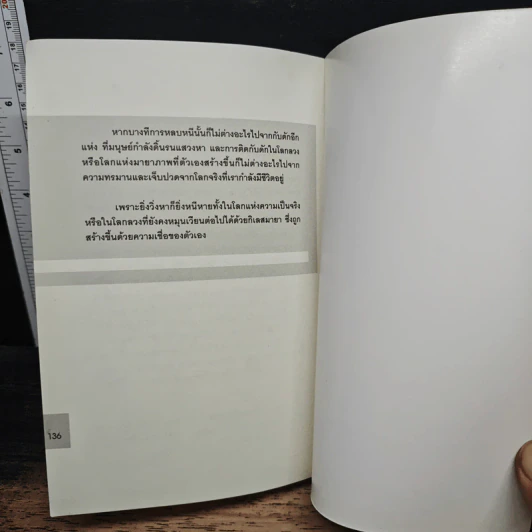 หากบางทีการหลบหนีนั้นก็ไม่ต่างอะไรไปจากกับดักอีก
แห่ง ที่มนุษย์กำลังดิ้นรนแสวงหา และการติดกับดักในโลกลวง
หรือโลกแห่งมายาภาพที่ตัวเองสร้างขึ้นก็ไม่ต่างอะไรไปจาก
ความทรมานและเจ็บปวดจากโลกจริงที่เรากำลังมีชีวิตอยู่
เพราะยิ่งวิ่งหาก็ยิ่งหนีหายทั้งในโลกแห่งความเป็นจริง
หรือในโลกลวงที่ยังคงหมุนเวียนต่อไปได้ด้วยกิเลสมายา ซึ่งถูก
สร้างขึ้นด้วยความเชื่อของตัวเอง
136